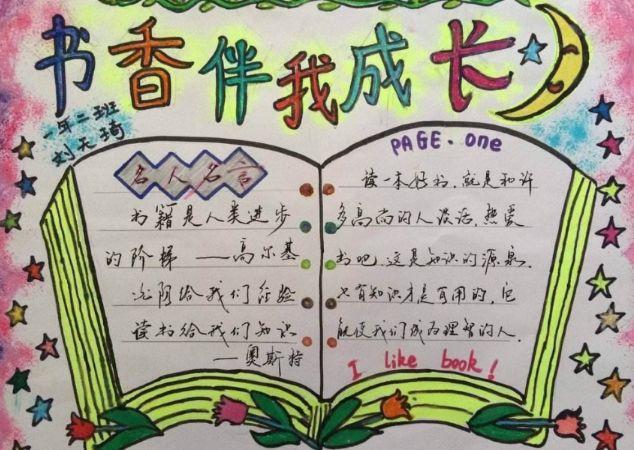 书香伴我成长
一年二班
刘天琦
名人名言
书籍是人类进步
的阶梯——高尔基
光阴给我们经验
读书给我们知识
——奥斯特
PAGE·one
读一本好书,就是和许
多高尚的人谈话,热爱
书吧,这是知识的源泉,
只有知识才是有用的,它
能使我们成为理智的人.
I like book!